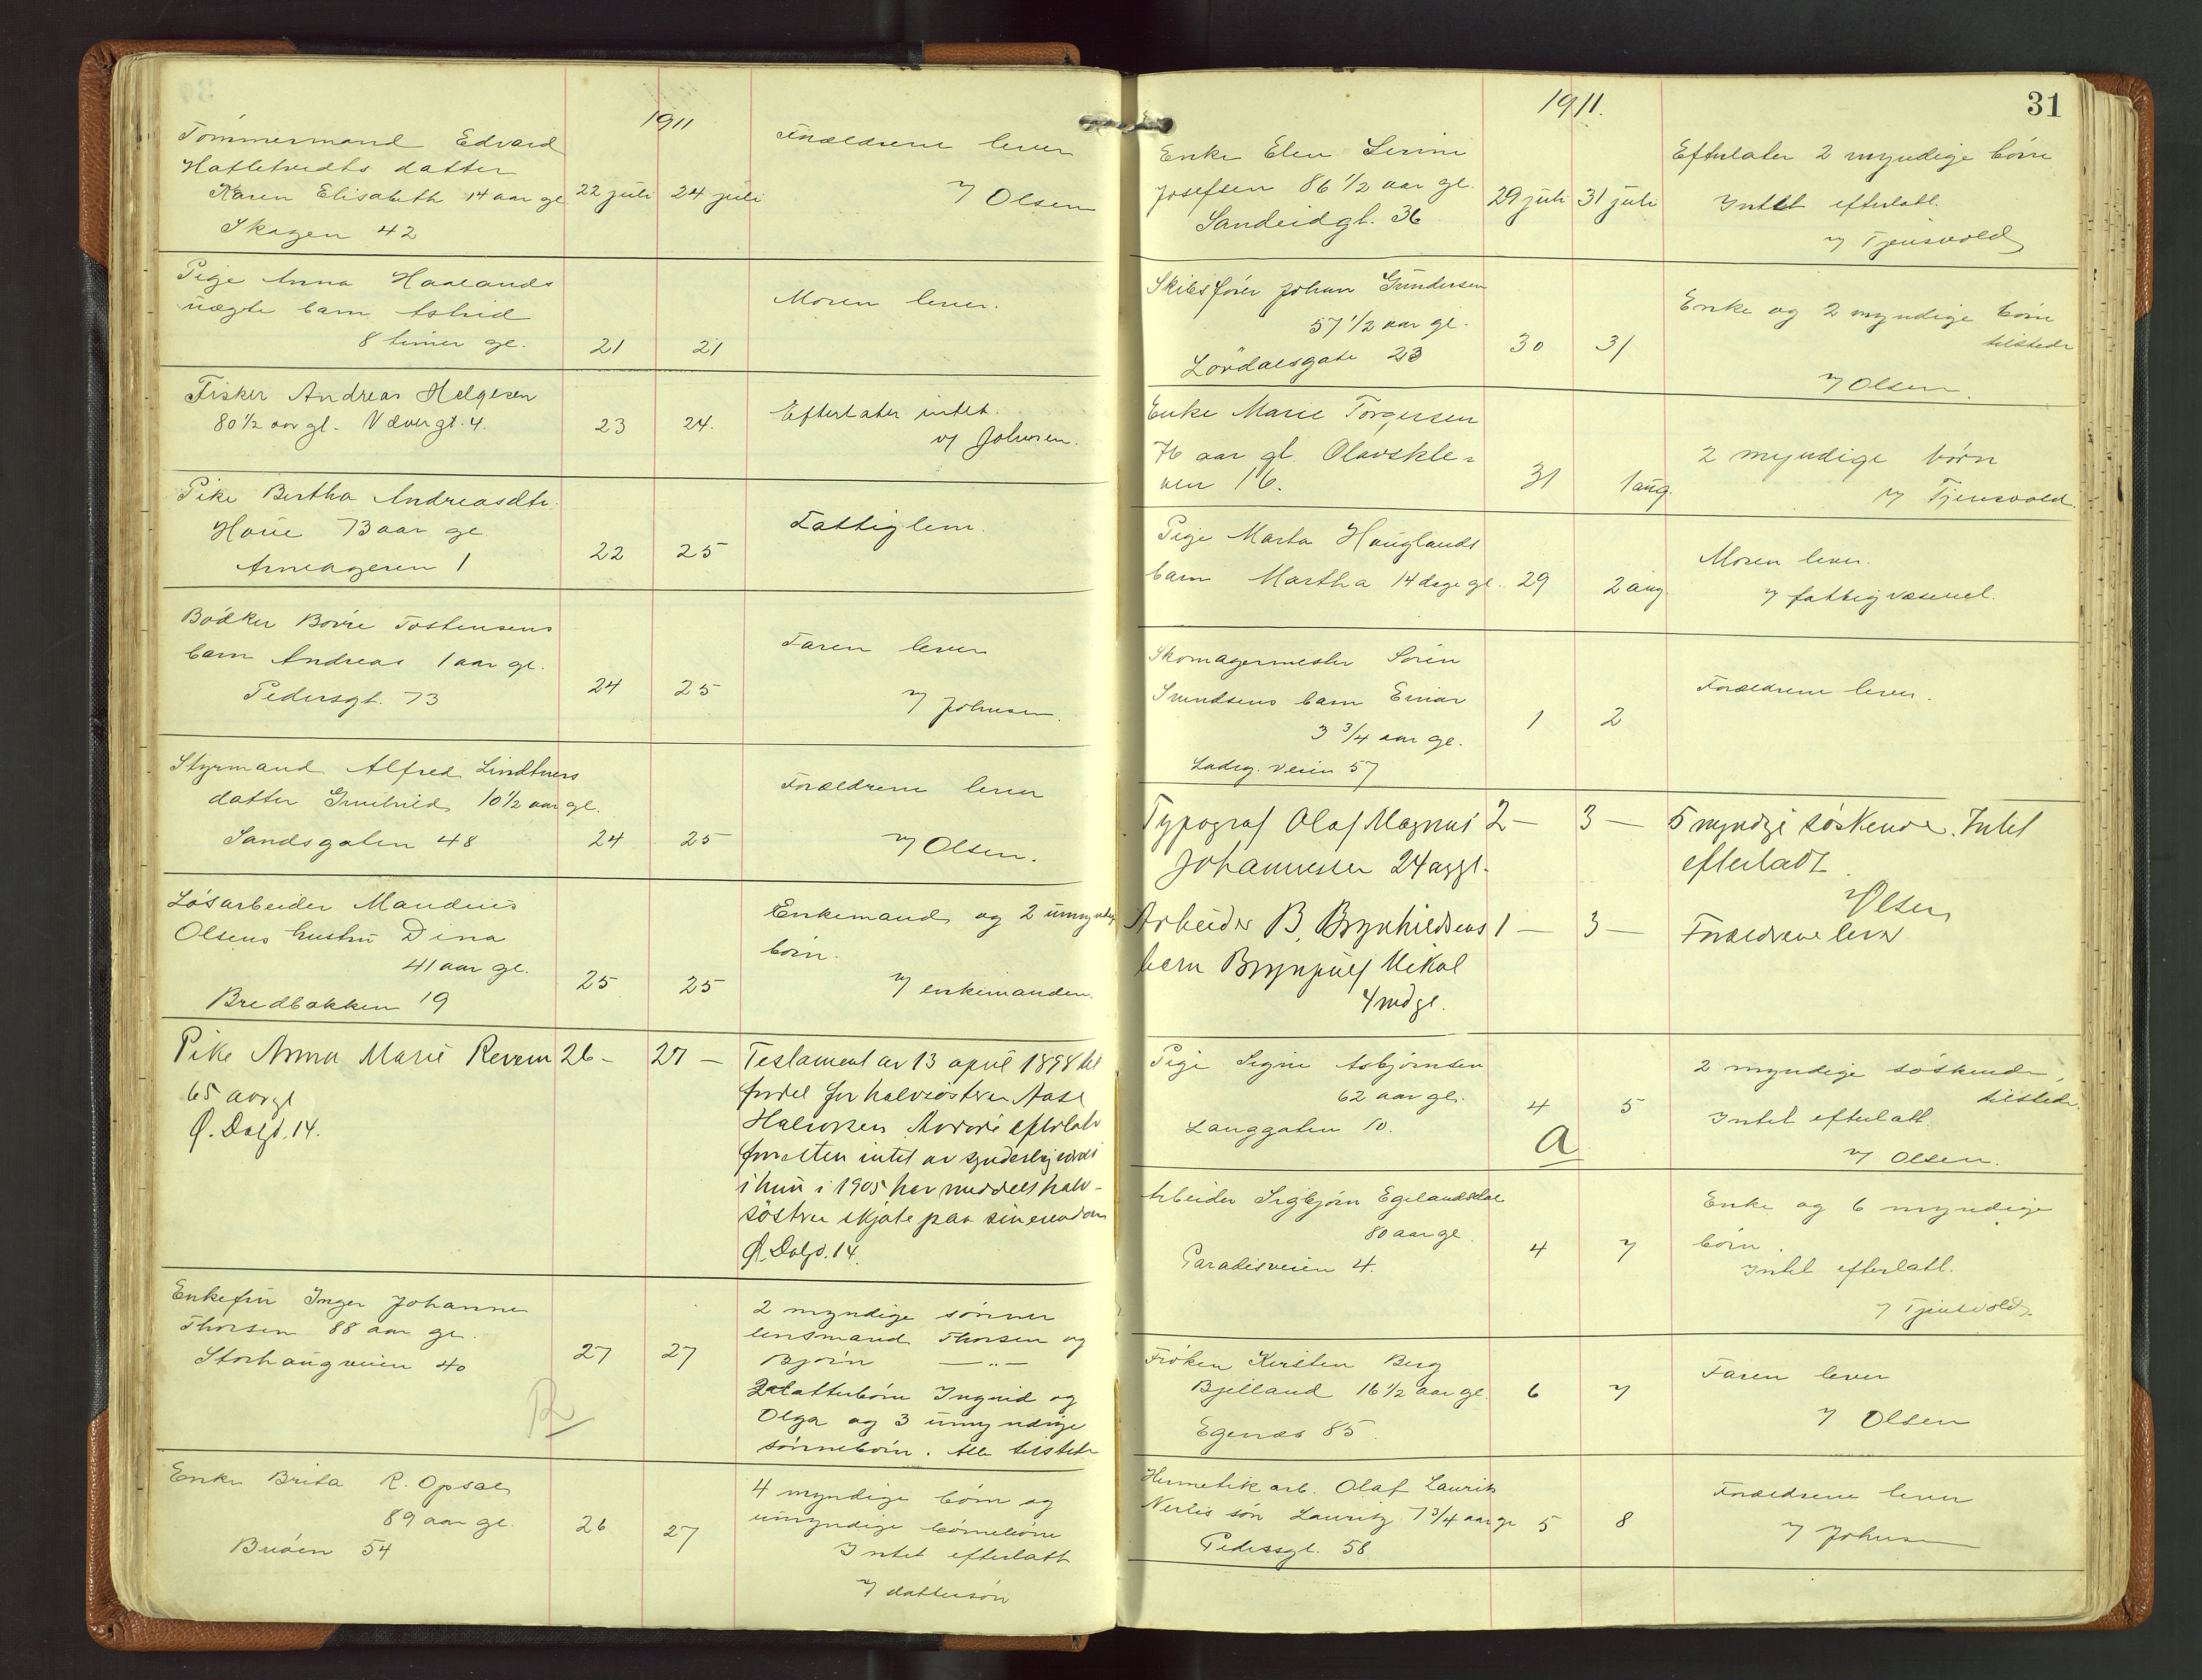 1911
Tømmermand Edvard
Hatletvedts datter
Karen Elisabeth 14 aar gl 22 juli 24 juli
Skagen 42
Forældrene lever
v/ Olsen
Pige Anna Haalands
uægte barn Astrid
8 timer gl. 21 21
Moren lever.
Fisker Andreas Helgesen
80 1/2 aar gl. Vævergt. 4. 23 24.
Efterlater intet.
v/ Johnsen.
Pike Bertha Andreasdtr.
Houe 73 aar gl.
Arneageren 1 22 25
Fattiglem.
Bødker Børre Tostensens
barn Andreas 1 aar gl.
Pedersgt. 73 24 25
Faren lever
v/ Johnsen.
Styrmand Alfred Lindtners
datter Gunhild 10 1/2 aar gl.
Sandsgaten 48 24 25
Forældrene lever
v/ Olsen.
Løsarbeider Maudius
Olsens hustru Dina
41 aar gl.
Bredbakken 19 25 25
Enkemand og 2 umyndige
børn.
v/ enkemanden.
Pike Anna Marie Revem 26 - 27 -
65 aargl
Ø. Dalgt. 14.
Testament av 13 april 1898 til
fordel for halvsøsteren Aase
Halvorsen Avdøde efterlater
forresten intet av synderlig værdi
i hun i 1905 har meddelt halv-
søstren skjøte paa sin eiendom
Ø. Dalgt. 14.
Enkefru Inger Johanne
Thorsen 88 aar gl.
Storhaugveien 40 27 27
R
2 myndige sønner
lensmand Thorsen og
Bjørn — " —
2 datterbørn Ingrid og
Olga og 3 umyndige
sønnebørn. Alle tilstede
Enke Brita R. Opsal
89 aar gl.
Buøen 54 26 27
4 myndige børn og
umyndige børnebørn
Intet efterlatt
v/ dattersøn
31
1911.
Enke Elen Serine
Josefsen 86 1/2 aar gl.
Sandeidgt. 36 29 juli 31 juli
Efterlater 2 myndige børn
Intet efterlatt.
v/ Tjensvold
Skibsfører Johan Gundersen
57 1/2 aar gl.
Løvdalsgate 23 30 31
Enke og 2 myndige børn
tilstede
v/ Olsen.
Enke Marie Torgersen
76 aar gl. Olavskle=
ven 16. 31 1 aug.
2 myndige børn
v/ Tjensvold.
Pige Marta Hauglands
barn Martha 14 dage gl. 29 2 aug.
Moren lever.
v/ fattigvæsenet.
Skomagermester Søren
Svendsens barn Einar
3 3/4 aar gl. 1 2
Ladeg. veien 57
Forældrene lever.
Typograf Olaf Magnus 2 — 3 —
Johannessen 24 argl.
5 myndige søskende. Intet
efterladt
v/ Olsen
Arbeider B. Brynhildsens 1 — 3 —
barn Brynjulf Mikal
4 mdgl.
Forældrene lever
Pige Signe Asbjørnsen
62 aar gl.
Langgaten 10. 4 5
a
2 myndige søskende,
tilstede.
Intet efterlatt
v/ Olsen.
Arbeider Sigbjørn Egelandsdal
80 aar gl.
Paradisveien 4. 4 7
Enke og 6 myndige
børn.
Intet efterlatt.
v/ Tjensvold.
Frøken Kirsten Berg
Bjelland 16 1/2 aar gl. 6 7
Egenæs 85.
Faren lever
v/ Olsen
Hermetikarb. Olaf Laurits
Nerlis søn Lauritz 7 3/4 aar gl 5 8
Pedersgt. 58
Forældrene lever
v/ Johnsen